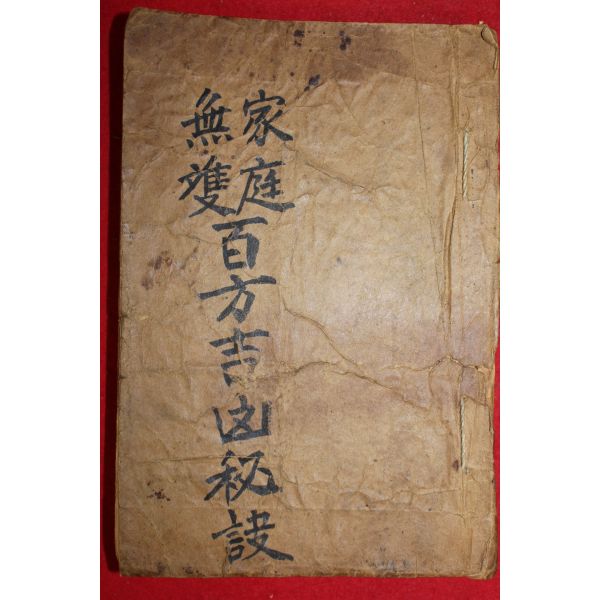 家庭
無雙
百方吉凶秘訣